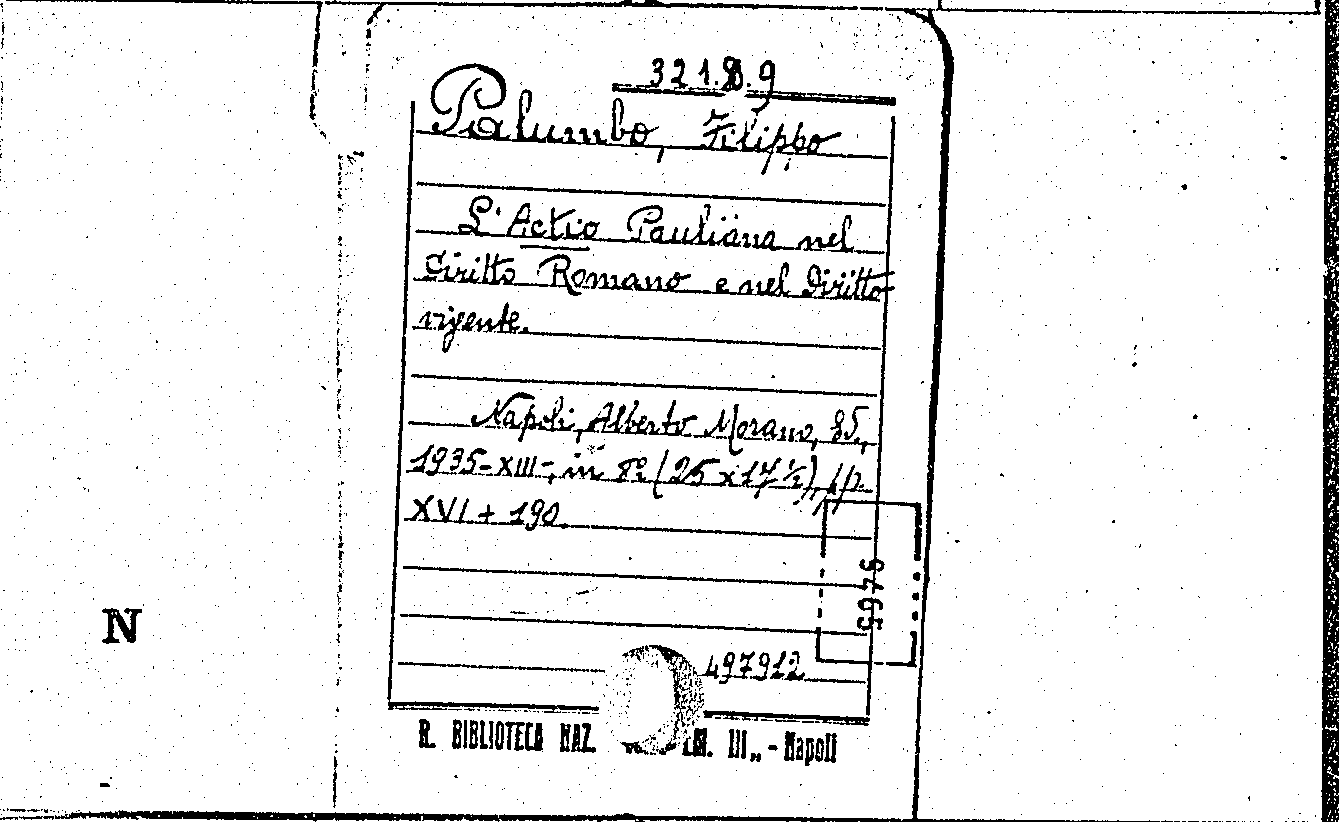 321.8.9
Palumbo, Filippo
L'Actio Pauliana nel
Diritto Romano e nel Diritto
vigente.
Napoli, Alberto Morano, Ed.,
1935-XIII-, in 8º (25 x 17 ½), pp.
XVI + 190.
5946
N
497912
R. BIBLIOTECA NAZ. III„ - Napoli